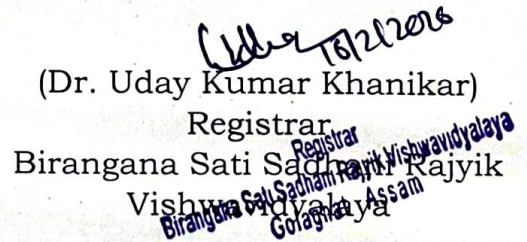 16/2/2026
(Dr. Uday Kumar Khanikar)
Registrar
Birangana Sati Sadhani Rajyik
Vishwavidyalaya
Registrar
Birangana Sati Sadhani Rajyik Vishwavidyalaya
Golaghat Assam